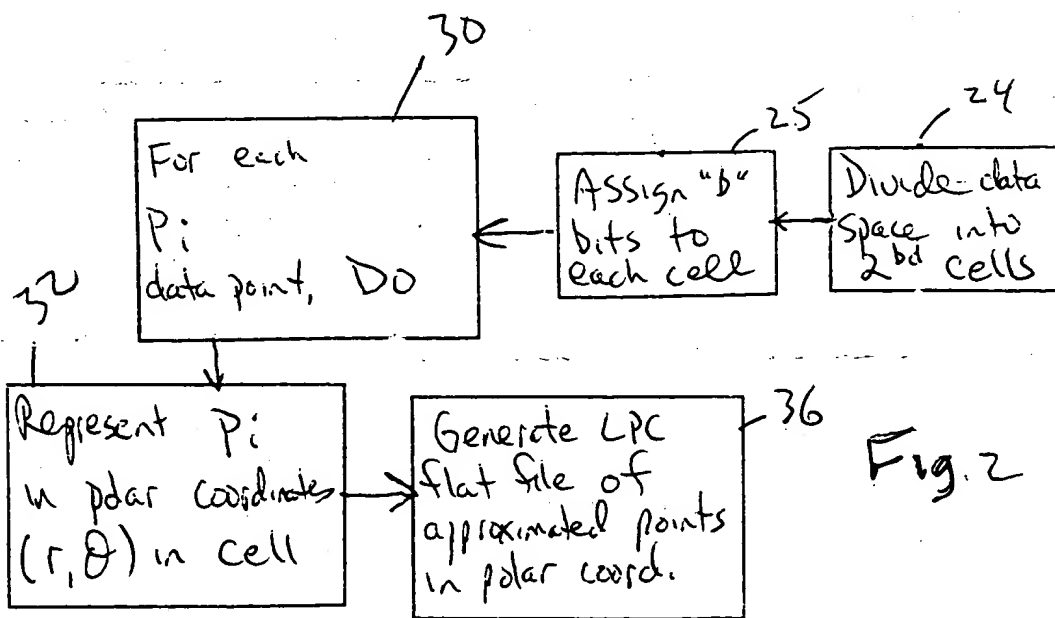 30
For each
Pi
data point, DO
25
Assign "b"
bits to
each cell
24
Divide data
space into
2^bd cells
32
Represent Pi
in polar coordinates
(r, θ) in cell
36
Generate LPC
flat file of
approximated points
in polar coord.
Fig. 2